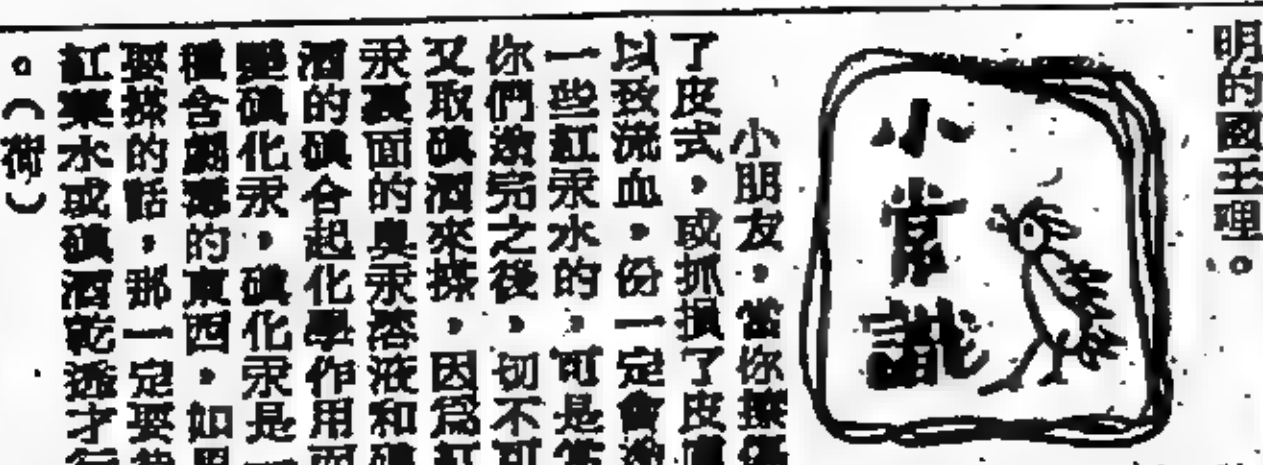 明的國王理。
小常識
小朋友，當你擦傷
了皮式，或抓損了皮膚
以致流血，份一定會塗
一些紅汞水的，可是當
你們塗完之後，切不可
又取碘酒來搽，因為紅
汞裏面的臭汞溶液和碘
酒的碘合起化學作用而
變碘化汞，碘化汞是一
種含劇毒的東西，如果
要搽的話，那一定要
紅藥水或碘酒乾透才行
。（荷）